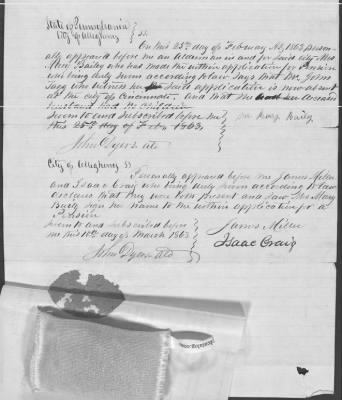 State of Pennsylvania
City of Allegheny } SS.
On this 25th day of February AD, 1863 person-
ally appeared before me an Alderman in and for said city Mrs
Mary Baily who has made the within application for Pension
who being duly sworn according to law says that Mr John
who witness said application is now absent
at the city of Cincinnati, and that
husband had no children
Sworn to and subscribed before me
this 25th day of Feby 1863,
Mary Baily
John Dyers Ald
City of Allegheny SS
Personally appeared before me James Miller
and Isaac Craig who being duly sworn according to law
declares that they were both present and saw Mrs Mary
Baily sign her name to the within application for a
Pension
Sworn to and subscribed before
me this 10th day of March 1863
James Miller
Isaac Craig
John Dyers Ald